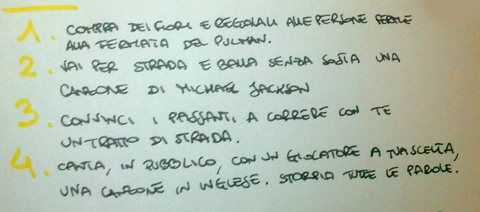 1. COMPRA DEI FIORI E REGALALI ALLE PERSONE FERME
ALLA FERMATA DEL PULMAN.
2. VAI PER STRADA E BALLA SENZA SOSTA UNA
CANZONE DI MICHAEL JACKSON
3. CONVINCI I PASSANTI A CORRERE CON TE
UN TRATTO DI STRADA.
4. CANTA, IN PUBBLICO, CON UN GIOCATORE A TUA SCELTA,
UNA CANZONE IN INGLESE. STORPIA TUTTE LE PAROLE.